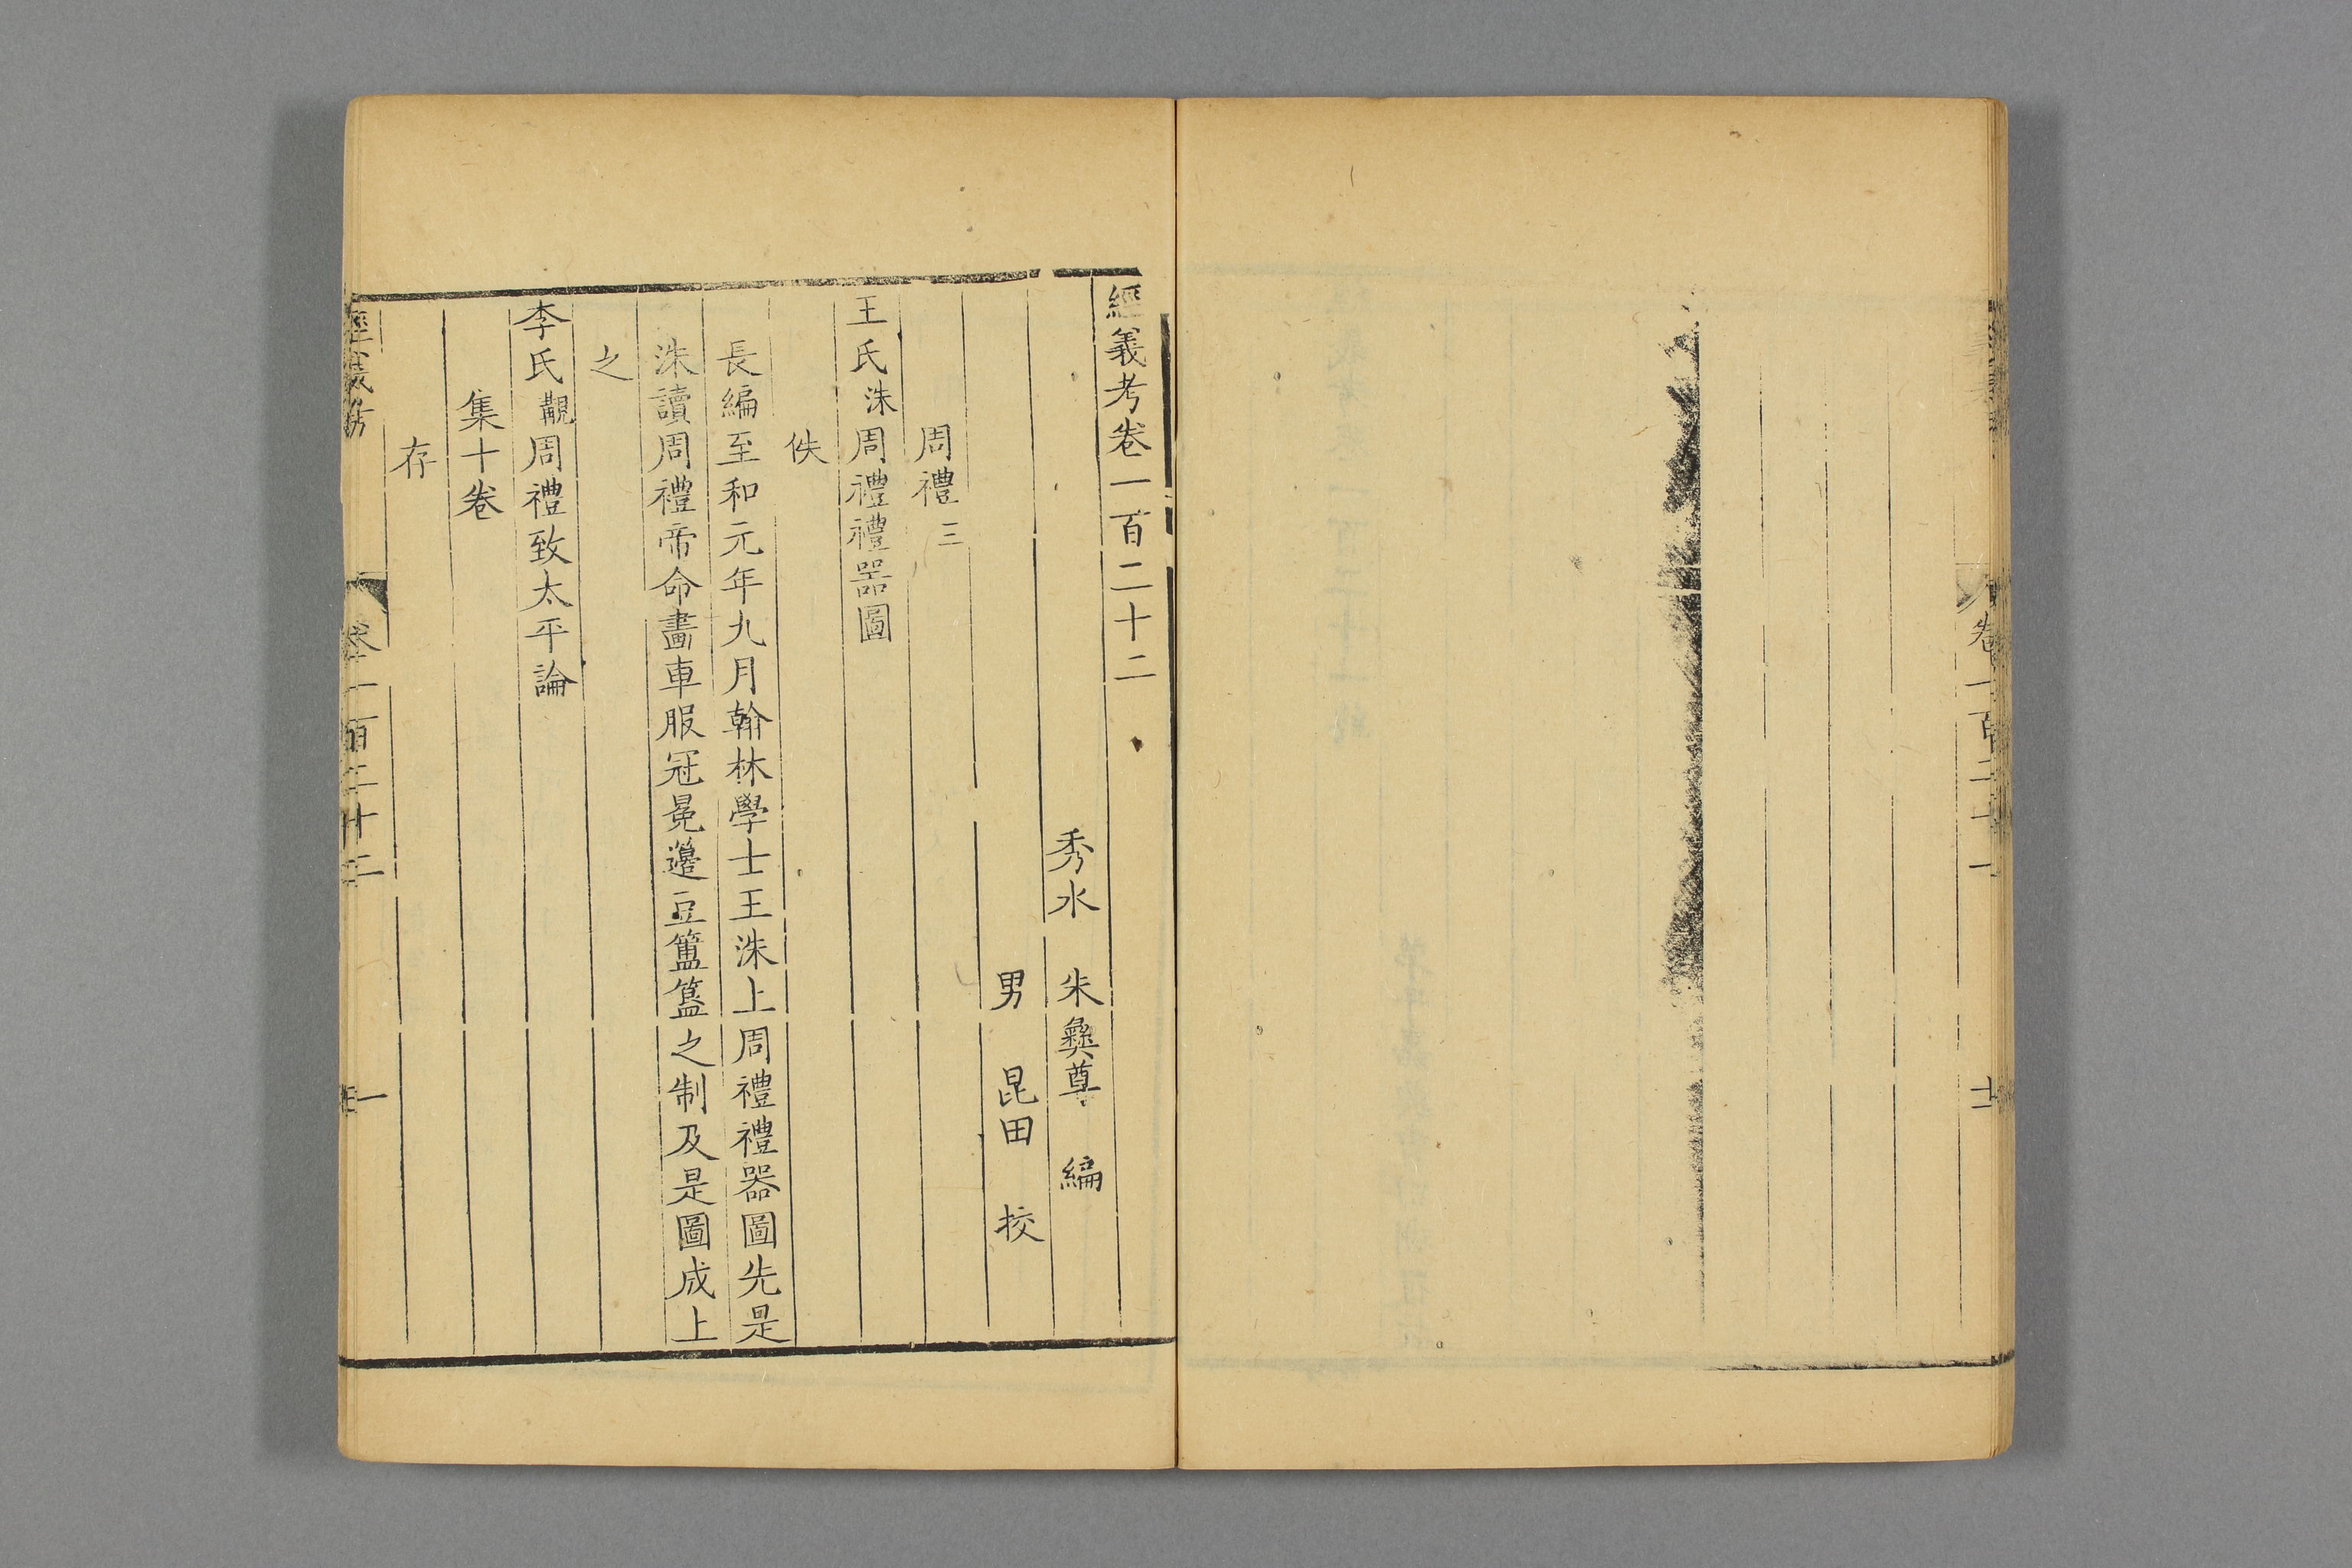 卷一百二十一
十一
經義考卷一百二十二
秀水 朱彝尊 編
男 昆田 挍
周禮三
王氏洙周禮禮器圖
佚
長編至和元年九月翰林學士王洙上周禮禮器圖先是
洙讀周禮帝命畫車服冠冕籩豆簠簋之制及是圖成上
之
李氏覯周禮致太平論
集十卷
存
經義考
卷一百二十二
一